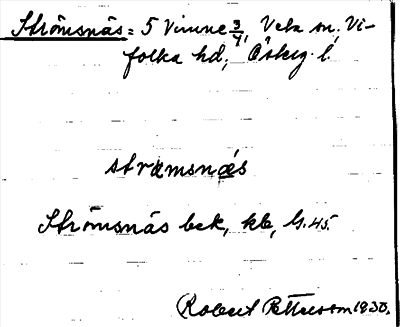 Strömsnäs = 5 Vinne 3/4, Veta sn, Vi-
folka hd; Österg. l.
stræmsnæ̀s
Strömsnäs bek, kb, G. 45.
Robert Pettersson 1930.